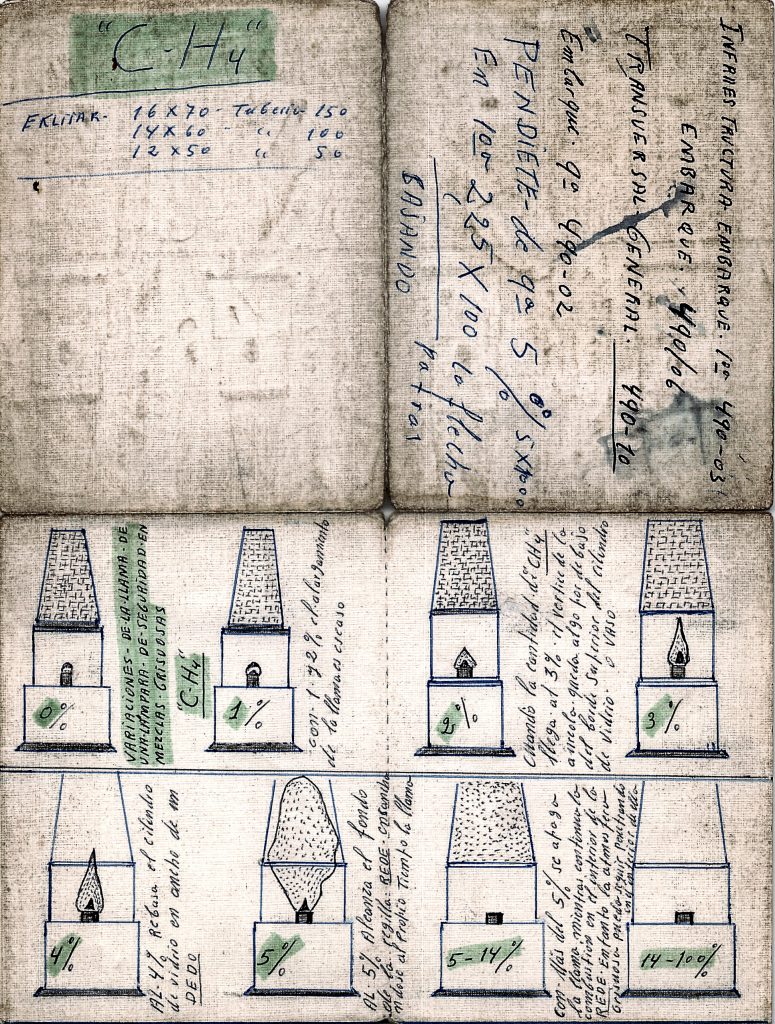 "C-H4"
EKLITAR- 16 X 70 - Tuberia 150
14 X 60 - " 100
12 X 50 " 50
INFRAESTRUCTURA EMBARQUE. 1ra 490-03
EMBARQUE. 490/06
TRANSVERSAL GENERAL. 490-70
Embarque. 9a 490-02
PENDIETE de 9a 5 % 5x100
En 1ra 225 X 100 la flecha
BAJANDO patras
VARIACIONES-DE-LA-LLAMA-DE-
UNA-LAMPARA-DE-SEGURIDAD-EN
MEZCLAS GRISUOSAS
"C-H4"
0%
1%
con-1 y 2% el alargamiento
de la llama es escaso
2%
Cuando la cantidad de "CH4"
llega al 3% el vertice de la
aureola queda algo por debajo
del borde superior del cilindro
de vidrio. O VASO
3%
4%
AL-4% Rebasa el cilindro
de vidrio en ancho de un
DEDO
5%
AL-5% Alcanza el fondo
de la regilla-REDE
al propio tiempo la llama
5-14%
con-Más del 5% se apaga
la llama mientras continua la
combustion en el interior de la
REDE en tanto la
grisuosa pueda seguir penetrando
14-100%